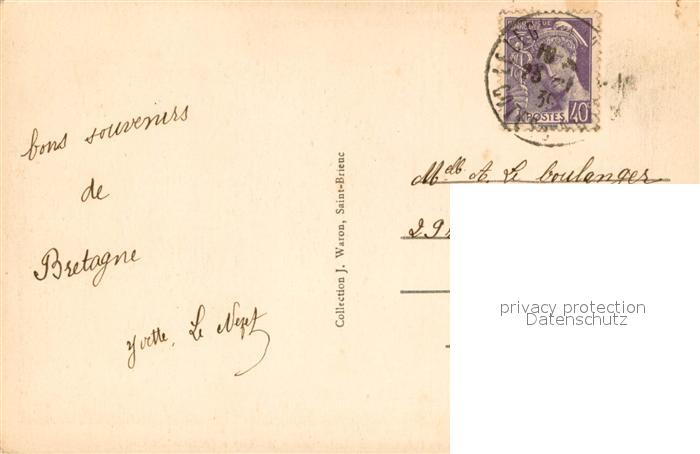 bons souvenirs
de
Bretagne
Yvette. Le
Collection J. Waron, Saint-Brieuc
POSTES 40
Melle A. Le boulanger
privacy protection
Datenschutz